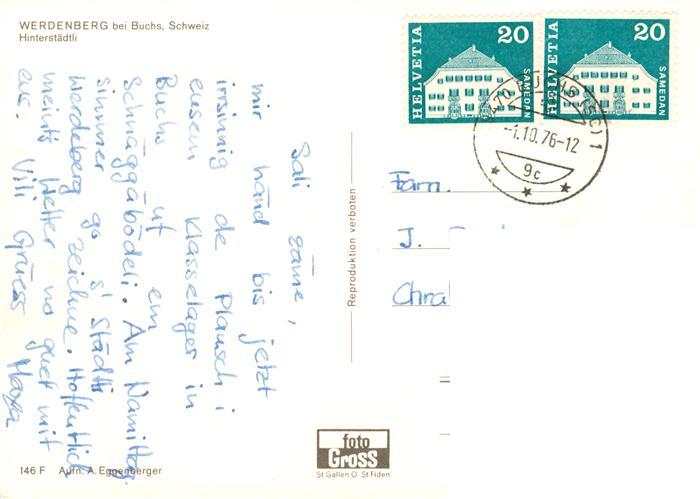 WERDENBERG bei Buchs, Schweiz
Hinterstädtli
Sali zäme,
mir händ bis jetzt
irrsinnig de Plausch i
eusem Klasselager in
Buchs uf em
Schnäggäbödeli. Am Namittag
simmer go s' Städtli
Werdeberg zeichne. Hoffentlich
meints Wetter no guet mit
eus. Vili Grüess
Reproduktion verboten
foto
Gross
St. Gallen O St. Fiden
146 F Aufn. A. Eggenberger
HELVETIA
20
SAMEDAN
HELVETIA
20
SAMEDAN
-1.10.76-12
9c
Fam.
J.